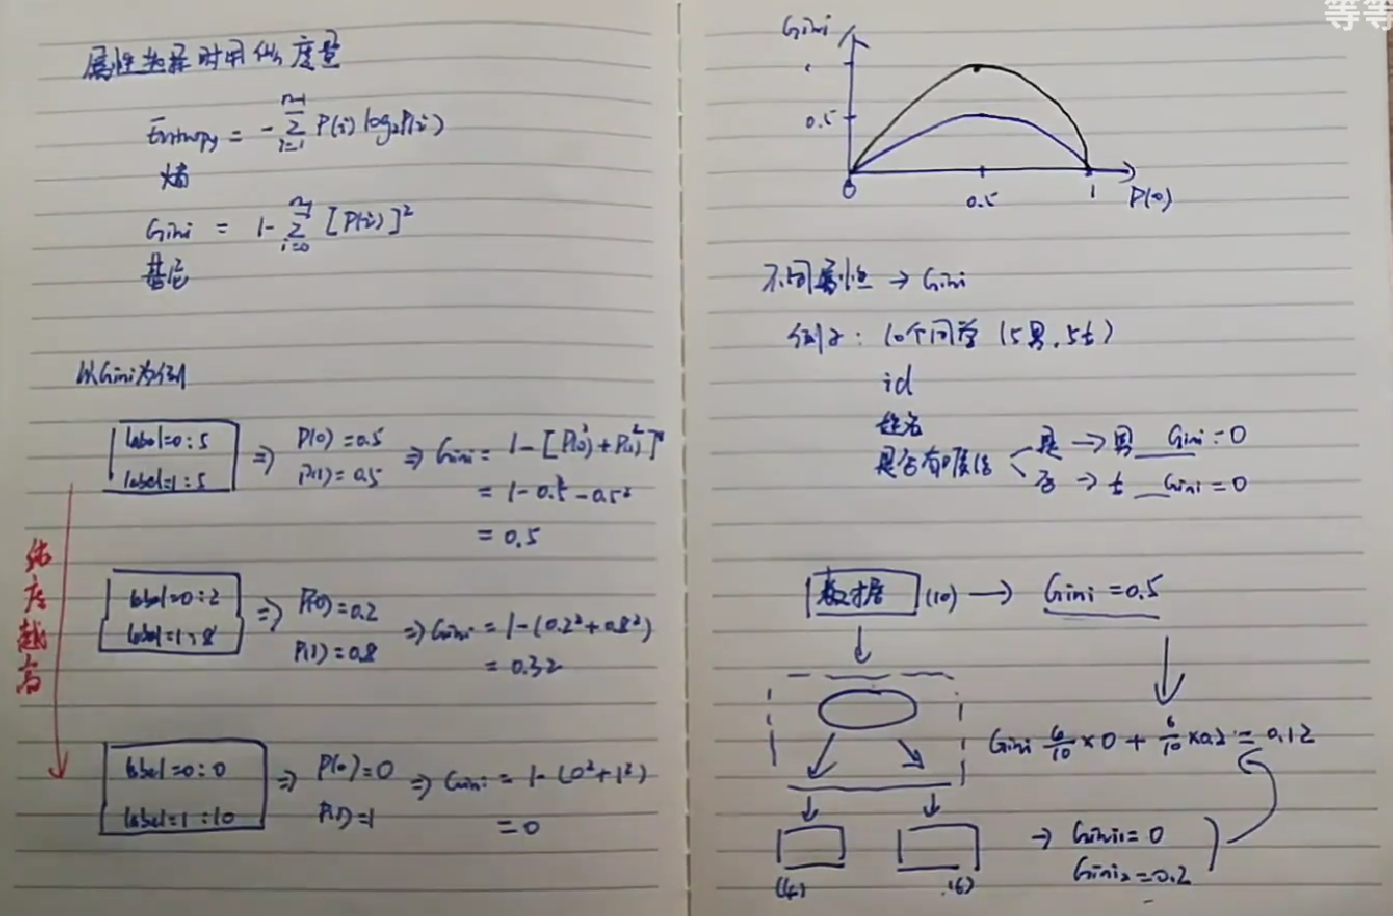 属性选择时用的度量
Entropy = - Σ_{i=1}^{n-1} P(i) log₂P(i)
熵
Gini = 1 - Σ_{i=0}^{n-1} [P(i)]²
基尼
以Gini为例
label=0:5
label=1:5
⇒ P(0)=0.5
P(1)=0.5
⇒ Gini = 1-[P(0)²+P(1)²]
= 1-0.5²-0.5²
= 0.5
label=0:2
label=1:8
⇒ P(0)=0.2
P(1)=0.8
⇒ Gini = 1-(0.2²+0.8²)
= 0.32
label=0:0
label=1:10
⇒ P(0)=0
P(1)=1
⇒ Gini = 1-(0²+1²)
= 0
纯度越高
等等
Gini
1
0.5
0
0.5
1
P(0)
不同属性 → Gini
例子: 10个同学 (5男,5女)
id
姓名
是否有喉结
是 → 男 Gini=0
否 → 女 Gini=0
数据 (10) → Gini=0.5
Gini 6/10 ×0 + 6/10 ×0.2 = 0.12
→ Gini1=0
Gini2=0.2
(4) (6)